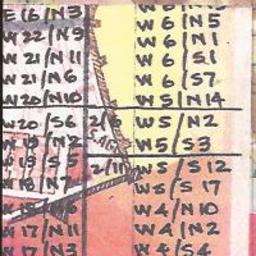 E16/N3
W22/N9
W21/N11
W21/N6
W20/N10
W20/S6
W19/N2
W19/S5
W18/N7
W17/N11
W17/N3
2/6
2/11
W6/N5
W6/N1
W6/S1
W6/S7
W5/N14
W5/N2
W5/S3
W5/S12
W4/N10
W4/N2
W4/S4